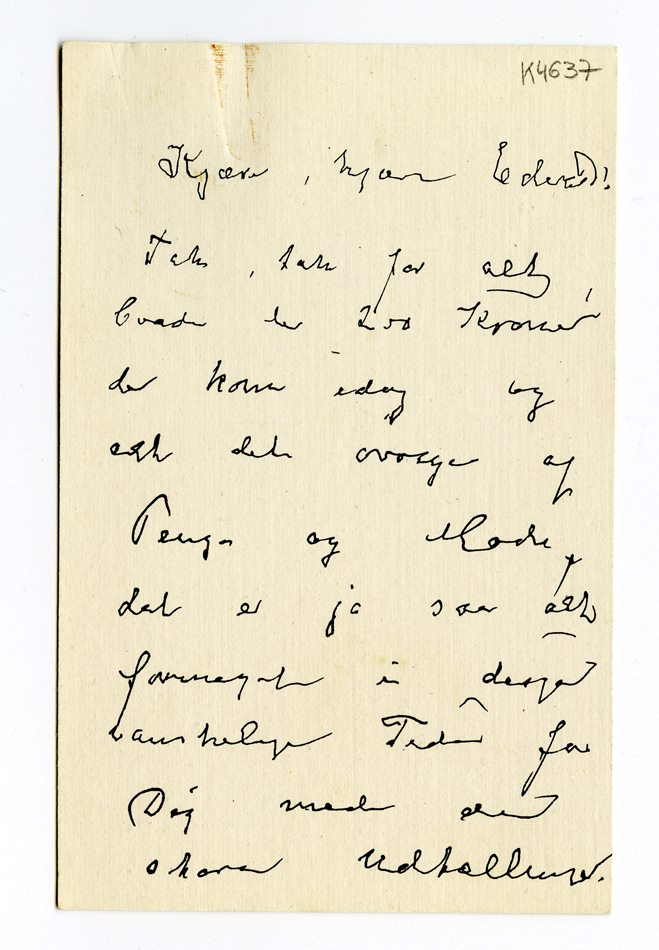 K4637
Kjære, kjære Edvard!
Tak, tak for alt,
baade de 200 Kroner
der kom idag og
alt det øvrige af
Penge og Mad,
det er jo saa alt
formeget i disse
vanskelige Tider for
Dig med de
store Udtællinger.